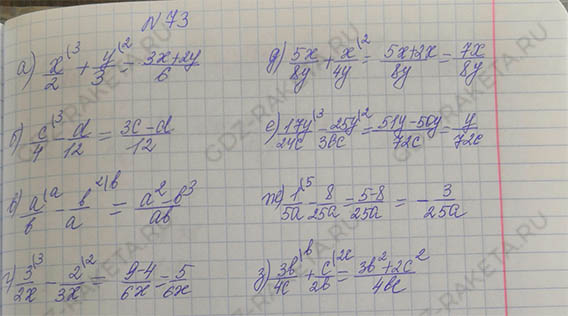 №73
а) x/2 (3 + y/3 (2 = 3x+2y/6
б) c/4 (3 - d/12 = 3c-d/12
в) a/b (a - b²/a (b = a²-b³/ab
г) 3/2x (3 - 2/3x (2 = 9-4/6x = 5/6x
д) 5x/8y + x/4y (2 = 5x+2x/8y = 7x/8y
е) 17y/24c (3 - 25y/36c (2 = 51y-50y/72c = y/72c
ж) 1/5a (5 - 8/25a = 5-8/25a = - 3/25a
з) 3b/4c (b + c/2b (2c = 3b²+2c²/4bc
GDZ-RAKETA.RU